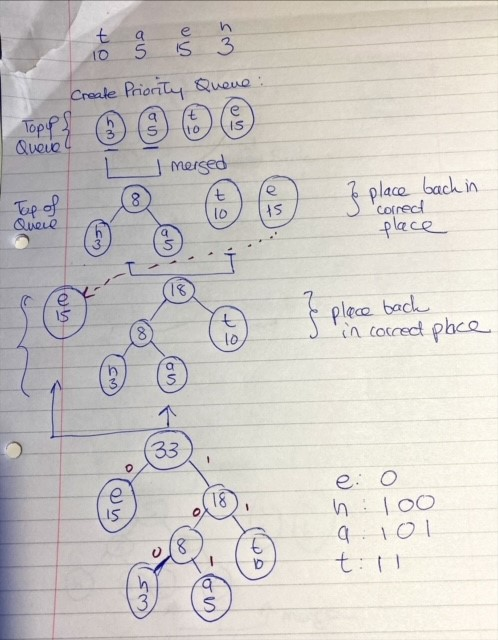 t a e h
10 5 15 3
Create Priority Queue:
Top of Queue { h 3 a 5 t 10 e 15
merged
Top of Queue
8 t 10 e 15 } place back in correct place
h 3 a 5
e 15 18 } place back in correct place
8 t 10
h 3 a 5
33
0 1
e 15 18
0 1
8 t 10
0 1
h 3 a 5
e: 0
h: 100
a: 101
t: 11